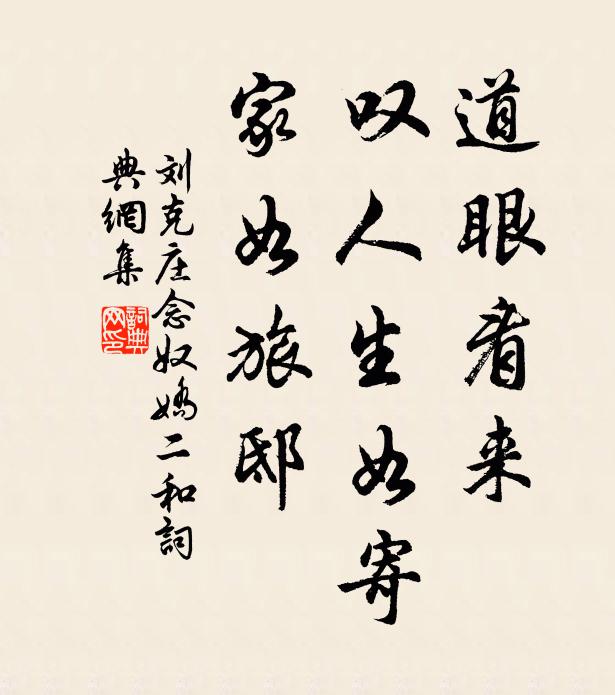 道眼看来
叹人生如寄
家如旅邸
刘克庄念奴娇二和詞
典網集
詞典
网印